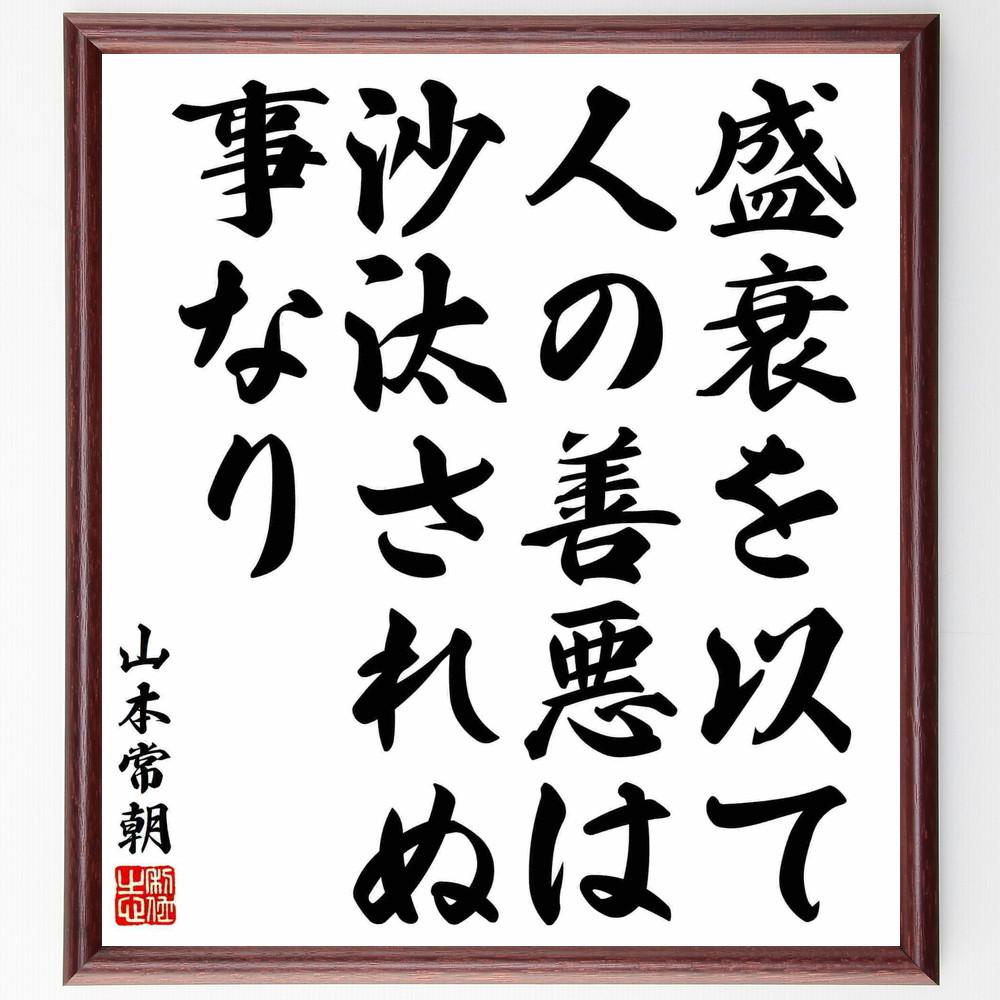 盛衰を以て
人の善悪は
沙汰されぬ
事なり
山本常朝